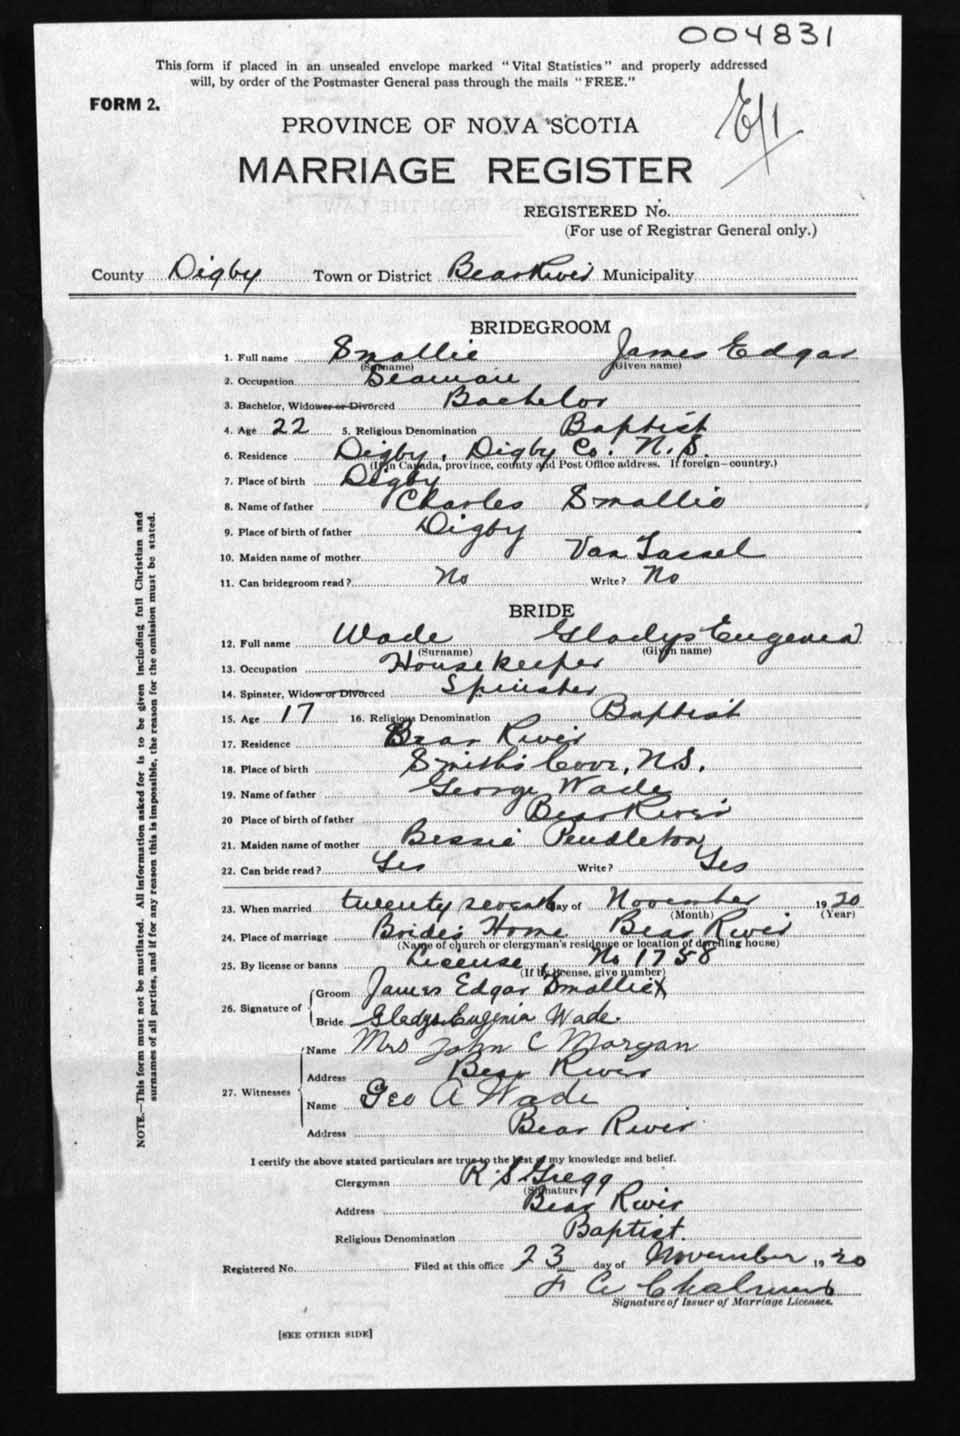 004831
This form if placed in an unsealed envelope marked "Vital Statistics" and properly addressed
will, by order of the Postmaster General pass through the mails "FREE."
FORM 2.
PROVINCE OF NOVA SCOTIA
MARRIAGE REGISTER
REGISTERED No.
(For use of Registrar General only.)
County Digby Town or District Bear River Municipality
BRIDEGROOM
1. Full name Smallie James Edgar
(Surname) (Given name)
2. Occupation Seaman
3. Bachelor, Widower or Divorced Bachelor
4. Age 22 5. Religious Denomination Baptist
6. Residence Digby, Digby Co. N.S.
(If in Canada, province, county and Post Office address. If foreign—country.)
7. Place of birth Digby
8. Name of father Charles Smallie
9. Place of birth of father Digby
10. Maiden name of mother Van Tassel
11. Can bridegroom read? No Write? No
BRIDE
12. Full name Wade Gladys Eugenia
(Surname) (Given name)
13. Occupation Housekeeper
14. Spinster, Widow or Divorced Spinster
15. Age 17 16. Religious Denomination Baptist
17. Residence Bear River
18. Place of birth Smith's Cove, N.S.
19. Name of father George Wade
20 Place of birth of father Bear River
21. Maiden name of mother Bessie Pendleton
22. Can bride read? Yes Write? Yes
23. When married twenty seventh day of November 1920
(Month) (Year)
24. Place of marriage Bride's Home Bear River
(Name of church or clergyman's residence or location of dwelling house)
25. By license or banns License, No 1758
(If by license, give number)
26. Signature of Groom James Edgar Smallie X
Bride Gladys Eugenia Wade.
27. Witnesses Name Mrs John C Morgan
Address Bear River
Name Geo A Wade
Address Bear River
I certify the above stated particulars are true to the best of my knowledge and belief.
Clergyman R. S. Gregg
(Signature)
Address Bear River
Religious Denomination Baptist.
Registered No. Filed at this office 23 day of November 1920
Signature of Issuer of Marriage Licenses.
[SEE OTHER SIDE]
NOTE.—This form must not be mutilated. All information asked for is to be given including full Christian and
surnames of all parties, and if for any reason this is impossible, the reason for the omission must be stated.